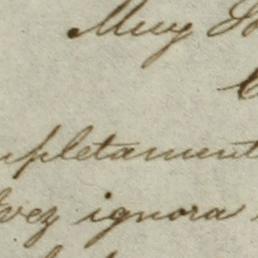 Muy
mpletament
vez ignora